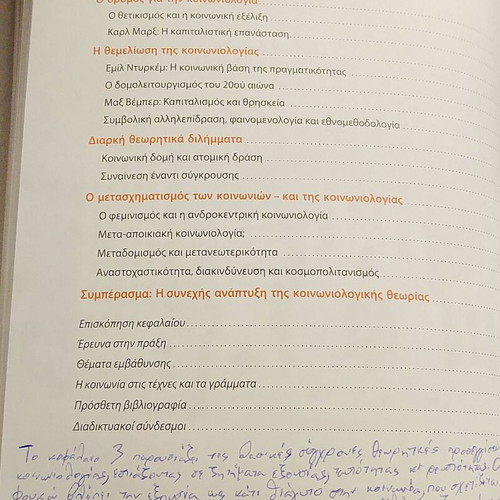 Ο δρόμος για την κοινωνιολογία
Ο θετικισμός και η κοινωνική εξέλιξη
Καρλ Μαρξ: Η καπιταλιστική επανάσταση
Η θεμελίωση της κοινωνιολογίας
Εμίλ Ντυρκέμ: Η κοινωνική βάση της πραγματικότητας
Ο δομολειτουργισμός του 20ου αιώνα
Μαξ Βέμπερ: Καπιταλισμός και θρησκεία
Συμβολική αλληλεπίδραση, φαινομενολογία και εθνομεθοδολογία
Διαρκή θεωρητικά διλήμματα
Κοινωνική δομή και ατομική δράση
Συναίνεση έναντι σύγκρουσης
Ο μετασχηματισμός των κοινωνιών – και της κοινωνιολογίας
Ο φεμινισμός και η ανδροκεντρική κοινωνιολογία
Μετα-αποικιακή κοινωνιολογία;
Μεταδομισμός και μετανεωτερικότητα
Αναστοχαστικότητα, διακινδύνευση και κοσμοπολιτανισμός
Συμπέρασμα: Η συνεχής ανάπτυξη της κοινωνιολογικής θεωρίας
Επισκόπηση κεφαλαίου
Έρευνα στην πράξη
Θέματα εμβάθυνσης
Η κοινωνία στις τέχνες και τα γράμματα
Πρόσθετη βιβλιογραφία
Διαδικτυακοί σύνδεσμοι
Το κεφάλαιο 3 παρουσιάζει τις βασικές σύγχρονες θεωρητικές
κοινωνιολογίας, εστιάζοντας σε ζητήματα εξουσίας, ταυτότητας κι ρευστότητας. Ο
Φουκώ βλέπει την εξουσία ως κάτι διάχυτο στην κοινωνία, που